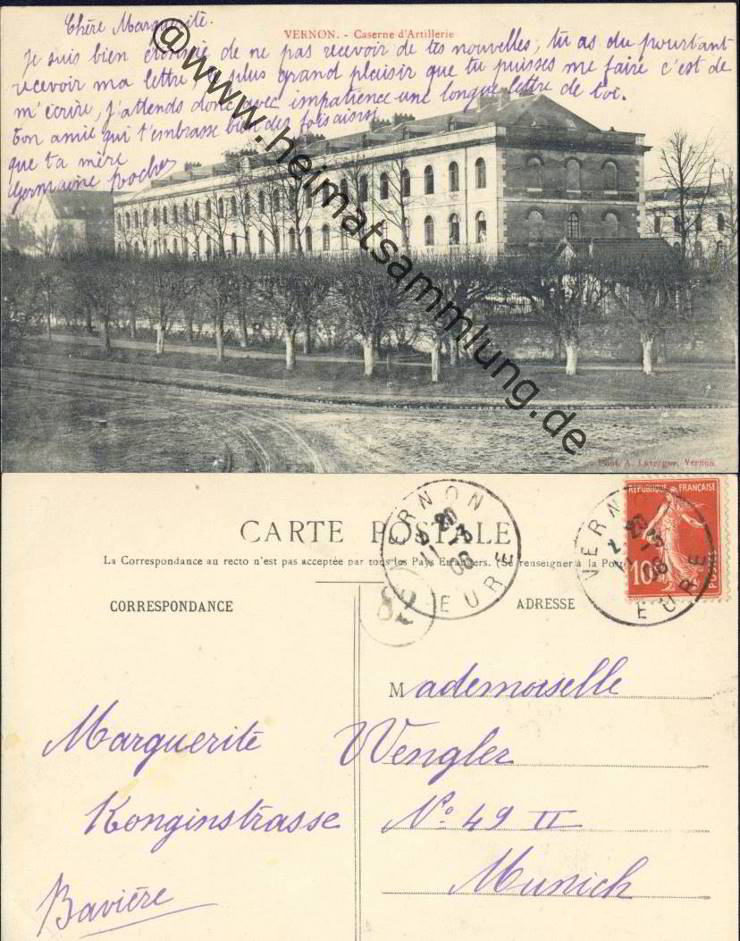 VERNON. - Caserne d'Artillerie
Chère Marguerite.
Je suis bien de ne pas recevoir de tes nouvelles, tu as du pourtant
recevoir ma lettre, le plus grand plaisir que tu puisses me faire c'est de
m'écrire, j'attends donc avec impatience une longue lettre de toi.
Ton amie qui t'embrasse bien des fois ainsi
que ta mère
Germaine Rocher
@www.heimatsammlung.de
Phot. A. Lavergne, Vernon
CARTE POSTALE
La Correspondance au recto n'est pas acceptée par tous les Pays Etrangers. (Se renseigner à la Poste
CORRESPONDANCE
ADRESSE
VERNON
EURE
VERNON
EURE
REPUBLIQUE FRANÇAISE
10
POSTES
Mademoiselle
Marguerite Wengler
Konginstrasse No 49 II
Bavière Munich